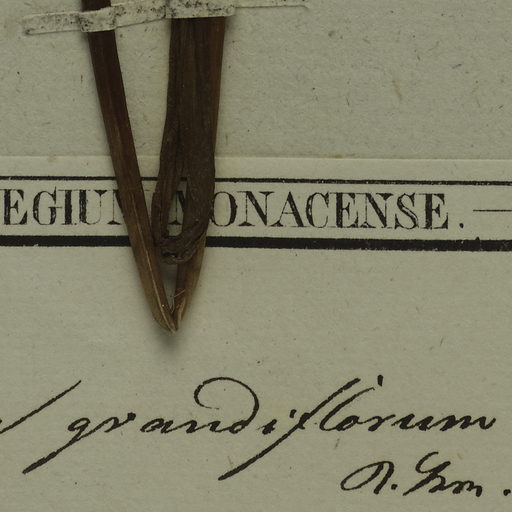 EGIUM MONACENSE.
grandiflorum
R. Br.